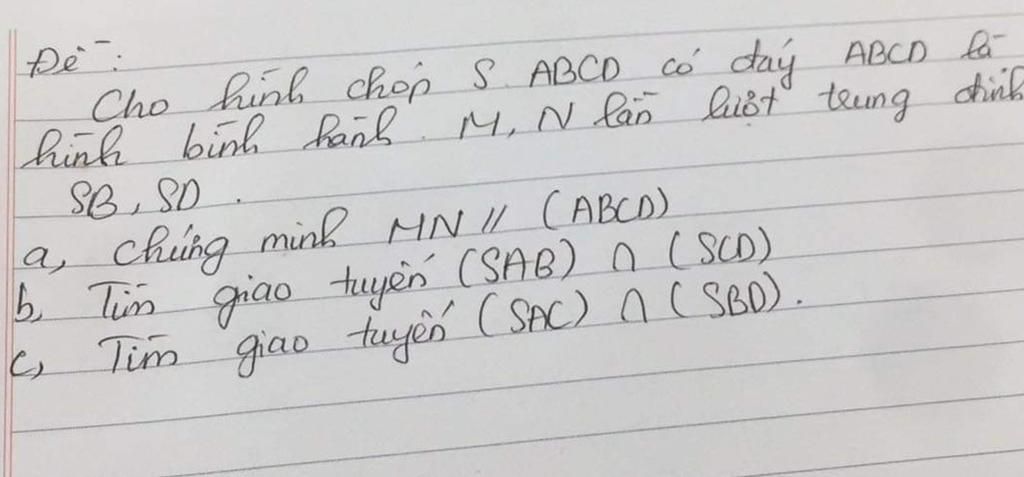 Đề:
Cho hình chóp S.ABCD có đáy ABCD là
hình bình hành. M, N lần lượt trung điểm
SB, SD.
a, Chứng minh MN // (ABCD)
b, Tìm giao tuyến (SAB) ∩ (SCD)
c, Tìm giao tuyến (SAC) ∩ (SBD).